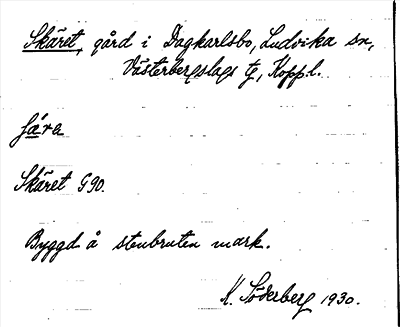 Skäret, gård i Dagkarlsbo, Ludvika sn,
Västerbergslags tg, Kopp.l.
Skäret G90.
Byggd å stenbruten mark.
K. Söderberg 1930.